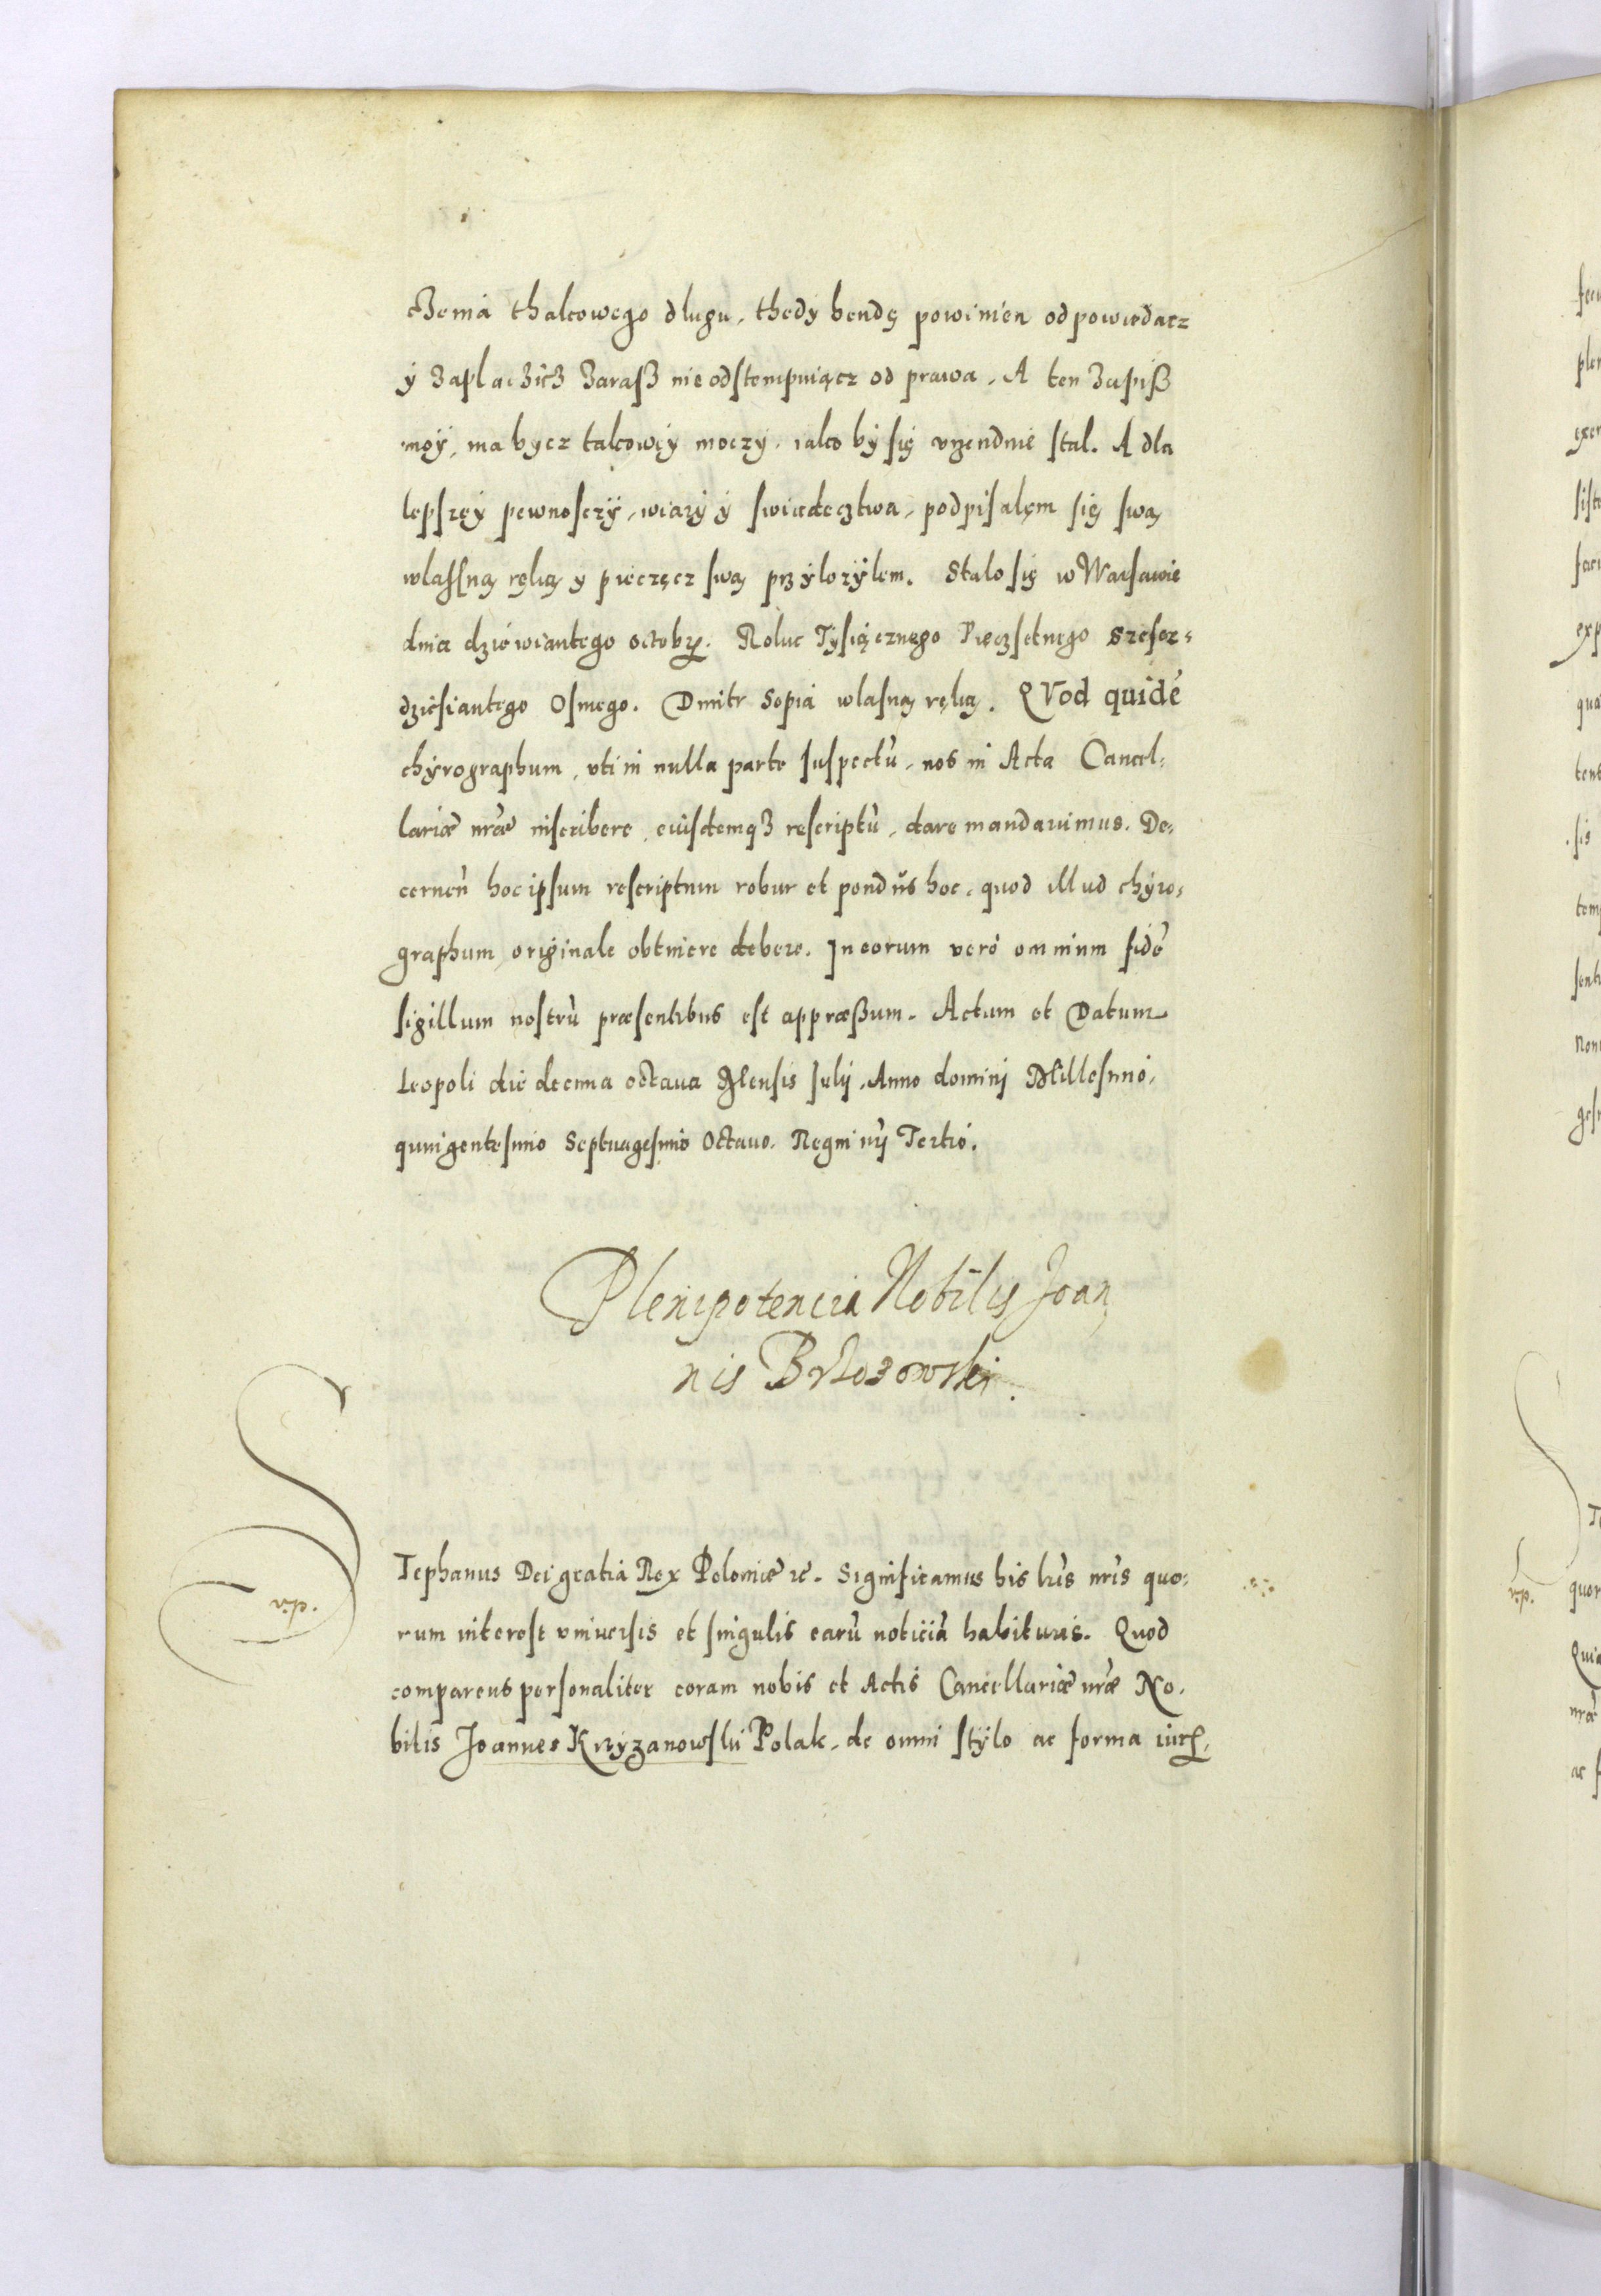 czenia thakowego dlugu, thedy bendę powinien odpowiedacz
y zaplaczicz zaraß nie odstempuiącz od prawa. A ten zapiß
moy, ma bycz takowęy moczy, iako by się vrzendnie stal. A dla
lepszęy pewnosczy, wiary y swiadecztwa, podpisalęm się swą
wlassną ręką y pieczęcz swą przylozylem. Stalo się w Warsawie
dnia dziewiantego octobr. Roku Tysiącznego Pięczsetnego Szescz-
dziesiantego Osmego. Dmitr Sopia wlasną ręką. QVod quidē
chyrographum, vti in nulla parte suspectū, nos in Acta Cancel-
lariæ nr̄æ inscribere, eiusdemqȝ rescriptū, dare mandauimus. De-
cernen̄ hoc ipsum rescriptum robur et pondus hoc, quod illud chyro-
graphum originale obtinere debere. In eorum vero omnium fidē
sigillum nostrū præsentibus est appræßum. Actum et Datum
Leopoli die decima octaua Mensis Julij. Anno domini Millesimo,
quingentesimo Septuagesimo Octauo. Regni nr̄i Tertio.
Plenipotencia Nobilis Joan
nis Brzozowski.
STephanus Dei gratia Rex Poloniæ etc. Significamus his lr̄is nr̄is quo-
rum interest vniuersis et singulis earū noticiā habituris. Quod
comparens personaliter coram nobis et Actis Cancellariæ nr̄æ No-
bilis Joannes Krzyzanowski Polak, de omni stylo ac forma iur̄,